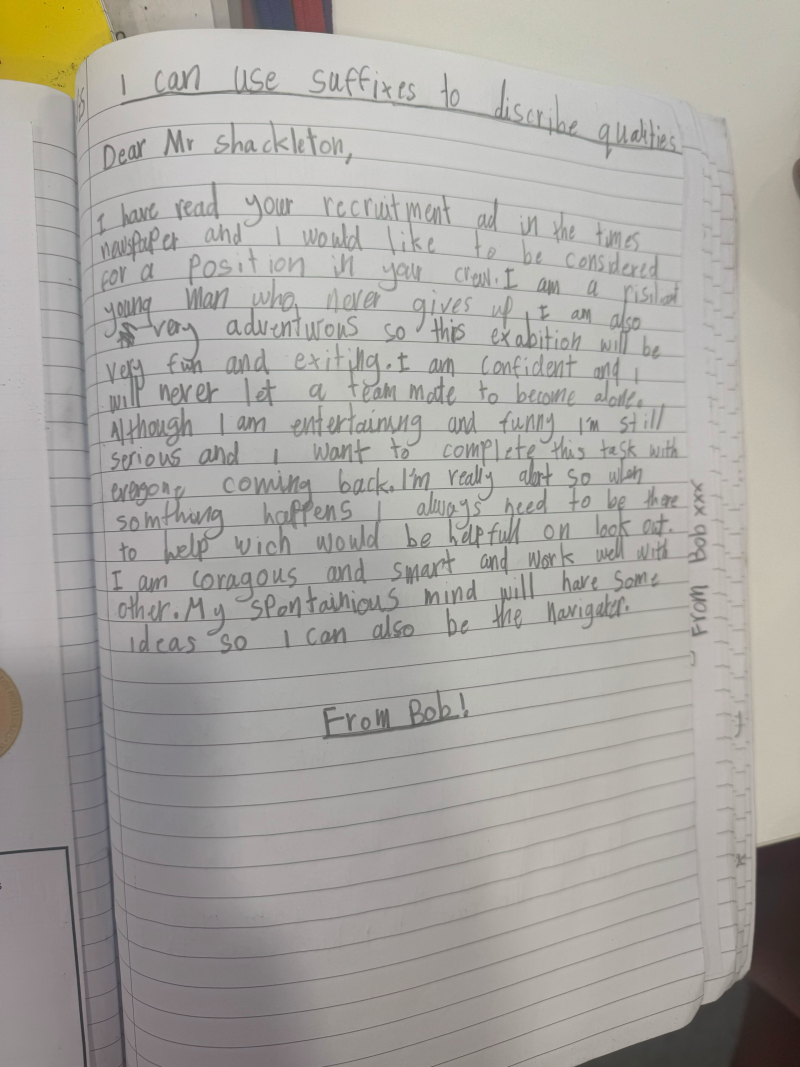 I can use suffixes to discribe qualties
Dear Mr shackleton,
I have read your recruitment ad in the times
newspaper and I would like to be considered
for a position in your crew. I am a risilent
young man who never gives up, I am also
very adventurous so this exabition will be
very fun and exiting. I am confident and I
will never let a team mate to become alone.
Although I am entertaining and funny I'm still
serious and I want to complete this task with
everyone coming back. I'm really alert so when
somthing happens I always need to be there
to help wich would be helpfull on look out.
I am coragous and smart and work well with
other. My spontainious mind will have some
ideas so I can also be the navigater.
From Bob!
From Bob xxx